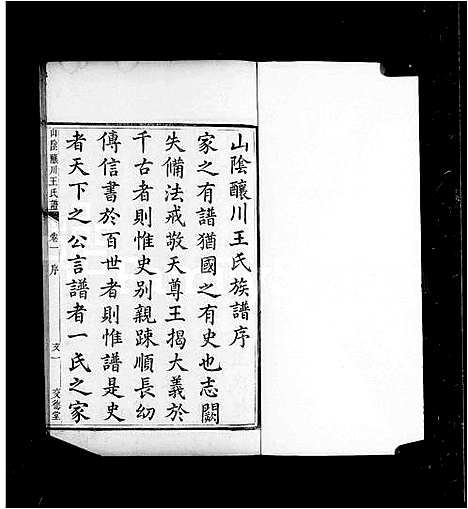 山陰釀川王氏族譜序
家之有譜猶國之有史也志闕
失備法戒敬天尊王揭大義於
千古者則惟史別親踈順長幼
傳信書於百世者則惟譜是史
者天下之公言譜者一氏之家
山陰釀川王氏譜 卷一 序 文一 文德堂